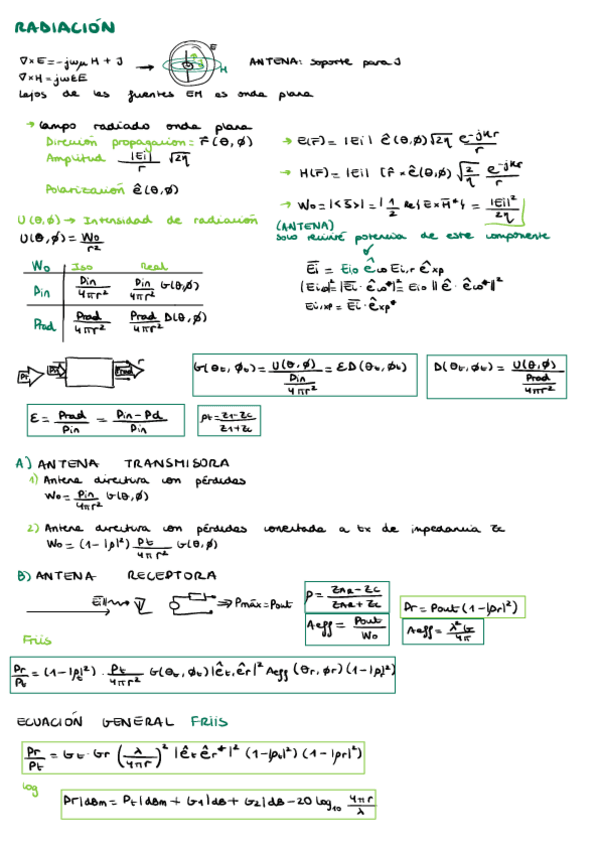 RADIACIÓN
∇×E=-jωμ H + J → E H ANTENA: soporte para J
∇×H=jωεE
Lejos de las fuentes EM es onda plana
→ Campo radiado onda plana
Dirección propagación = r̂(θ,ϕ)
Amplitud |Ei|/r √2η
Polarización ê(θ,ϕ)
→ E(r̄) = |Ei| ê(θ,ϕ)√2η e^-jkr/r
→ H(r̄) = |Ei| [r̂×ê(θ,ϕ) √2/η e^-jkr/r
→ Wo = |<S>| = |1/2 Re{E×H*}| = |Ei|²/2η
U(θ,ϕ) → Intensidad de radiación
U(θ,ϕ) = Wo/r²
(ANTENA)
solo recibe potencia de este componente
Ēi = Eio êco Ei,r êxp
|Eio|² = |Ēi · êco*|² = Eio || ê · êco*||²
Ei,xp = Ēi · êxp*
Wo Iso Real
Pin Pin/4πr² Pin/4πr² G(θ,ϕ)
Prad Prad/4πr² Prad/4πr² D(θ,ϕ)
G(θt, ϕt) = U(θ,ϕ)/(Pin/4πr²) = εD(θt,ϕt)
D(θt,ϕt) = U(θ,ϕ)/(Prad/4πr²)
ε = Prad/Pin = Pin-Pd/Pin
ρt = Z1-Zc/Z1+Zc
A) ANTENA TRANSMISORA
1) Antena directiva con pérdidas
Wo = Pin/4πr² G(θ,ϕ)
2) Antena directiva con pérdidas conectada a tx de impedancia Zc
Wo = (1-|ρ|²) Pt/4πr² G(θ,ϕ)
B) ANTENA RECEPTORA
⇒ Pmáx = Pout
ρ = ZAR-ZC/ZAR+ZC
Pr = Pout (1-|ρr|²)
Aeff = Pout/Wo
Aeff = λ²G/4π
Friis
Pr/Pt = (1-|ρt|²) · Pt/4πr² G(θt,ϕt)|êt,êr|² Aeff (θr,ϕr)(1-|ρ|²)
ECUACIÓN GENERAL FRIIS
Pr/Pt = Gt · Gr (λ/4πr)² |êt êr*|² (1-|ρt|²) (1-|ρr|²)
log
Pr|dBm = Pt|dBm + G1|dB + G2|dB - 20 log10 4πr/λ